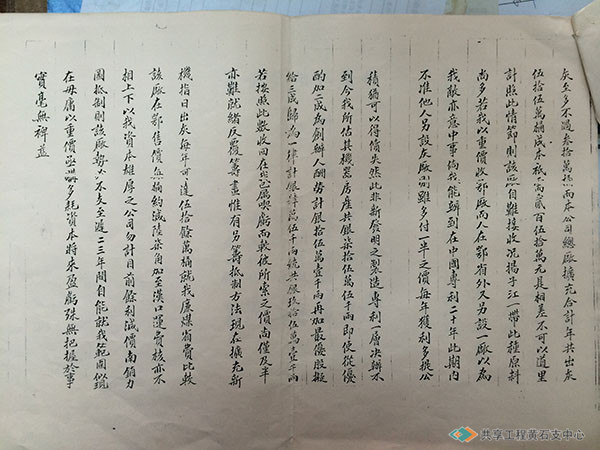 灰至多不過叁拾萬桶而本公司總廠擴充合計年共出灰
伍拾伍萬桶成本祇需貳百伍拾萬元是相差不可以道里
計照此情節制該廠自難接收况揚子江一帶此種原料
尚多若我以重價收鄂廠而人在鄂省外又另設一廠以為
我敵亦意中事倘我能辦到在中國專利二十年此期内
不准他人另設灰廠則雖多付一半之價每年獲利多提公
積猶可以得償失然此非新發明之製造專利一層决辦不
到今我所估其機器房産共銀柒拾伍萬伍千兩即使從優
酌加二成為創辦人酬勞計銀拾伍萬壹千兩再加最優股擬
給三成歸為一律計銀萬伍千兩統共銀玖拾伍萬壹千兩
若按照此數收回在我已屬喫虧而較彼所索之價尚僅及半
亦難就緒反覆籌畫惟有另籌抵制方法現在擴充新
機指日出灰每年可達伍拾餘萬桶就我廉煤省費比較
該廠在鄂售價每桶約減陸柒角加至漢口運費核亦不
相上下以我資本雄厚之公司勿計目前餘利減價高銷力
圖抵制則該廠勢必不支至遲二三年間自能就我範圍似現
在毋庸以重價盤購多耗資本將來盈虧殊無把握於事
實毫無裨益
共享工程黄石支中心